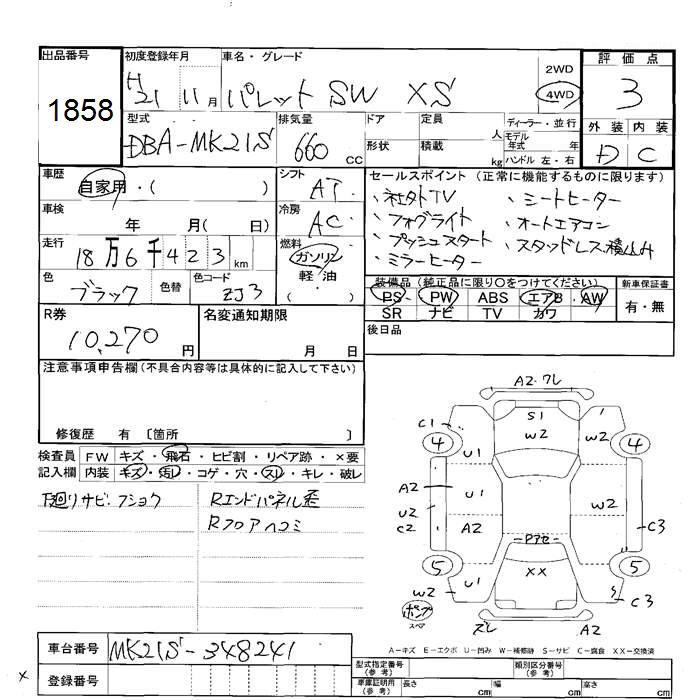 出品番号 初度登録年月 車名・グレード 評価点
1858 H21 11月 パレット SW XS 2WD 4WD 3
型式 排気量 ドア 定員 人 ディーラー・並行 外装 内装
DBA-MK21S 660 cc 形状 積載 kg モデル年式 年 D C
ハンドル 左・右
車歴 自家用・( ) シフト AT セールスポイント (正常に機能するものに限ります)
・社外TV ・シートヒーター
車検 年 月( 日) 冷房 AC ・フォグライト ・オートエアコン
・プッシュスタート ・スタッドレス積込み
走行 18万6千423km 燃料 ガソリン ・ミラーヒーター
軽油
色 ブラック 色替 色コード ZJ3 ( ) 装備品 (純正品に限り○をつけてください) 新車保証書
PS・PW・ABS・エアB・AW 有・無
SR ナビ TV カワ
R券 10,270円 名変通知期限 月 日 後日品
注意事項申告欄(不具合内容等は具体的に記入して下さい)
修復歴 有 〔箇所 〕
検査員 FW キズ・飛石・ヒビ割・リペア跡・×要
記入欄 内装 キズ・汚レ・コゲ・穴・スレ・キレ・破レ
下廻リサビ・フショク Rエンドパネル歪
Rフロアヘコミ
A2・ワレ
C1 S1 W2
4 U1 4
A2 U1 W2
U2 A2 C3
C2
Pアセ
5 XX 5
W2 U1 C3
ポンプ ズレ A2
スペア
A-キズ E-エクボ U-凹み W-補修跡 S-サビ C-腐食 XX-交換済
車台番号 MK21S-348241
登録番号
型式指定番号(参考) 類別区分番号(参考)
車庫証明用(参考) 長さ cm 幅 cm 高さ cm